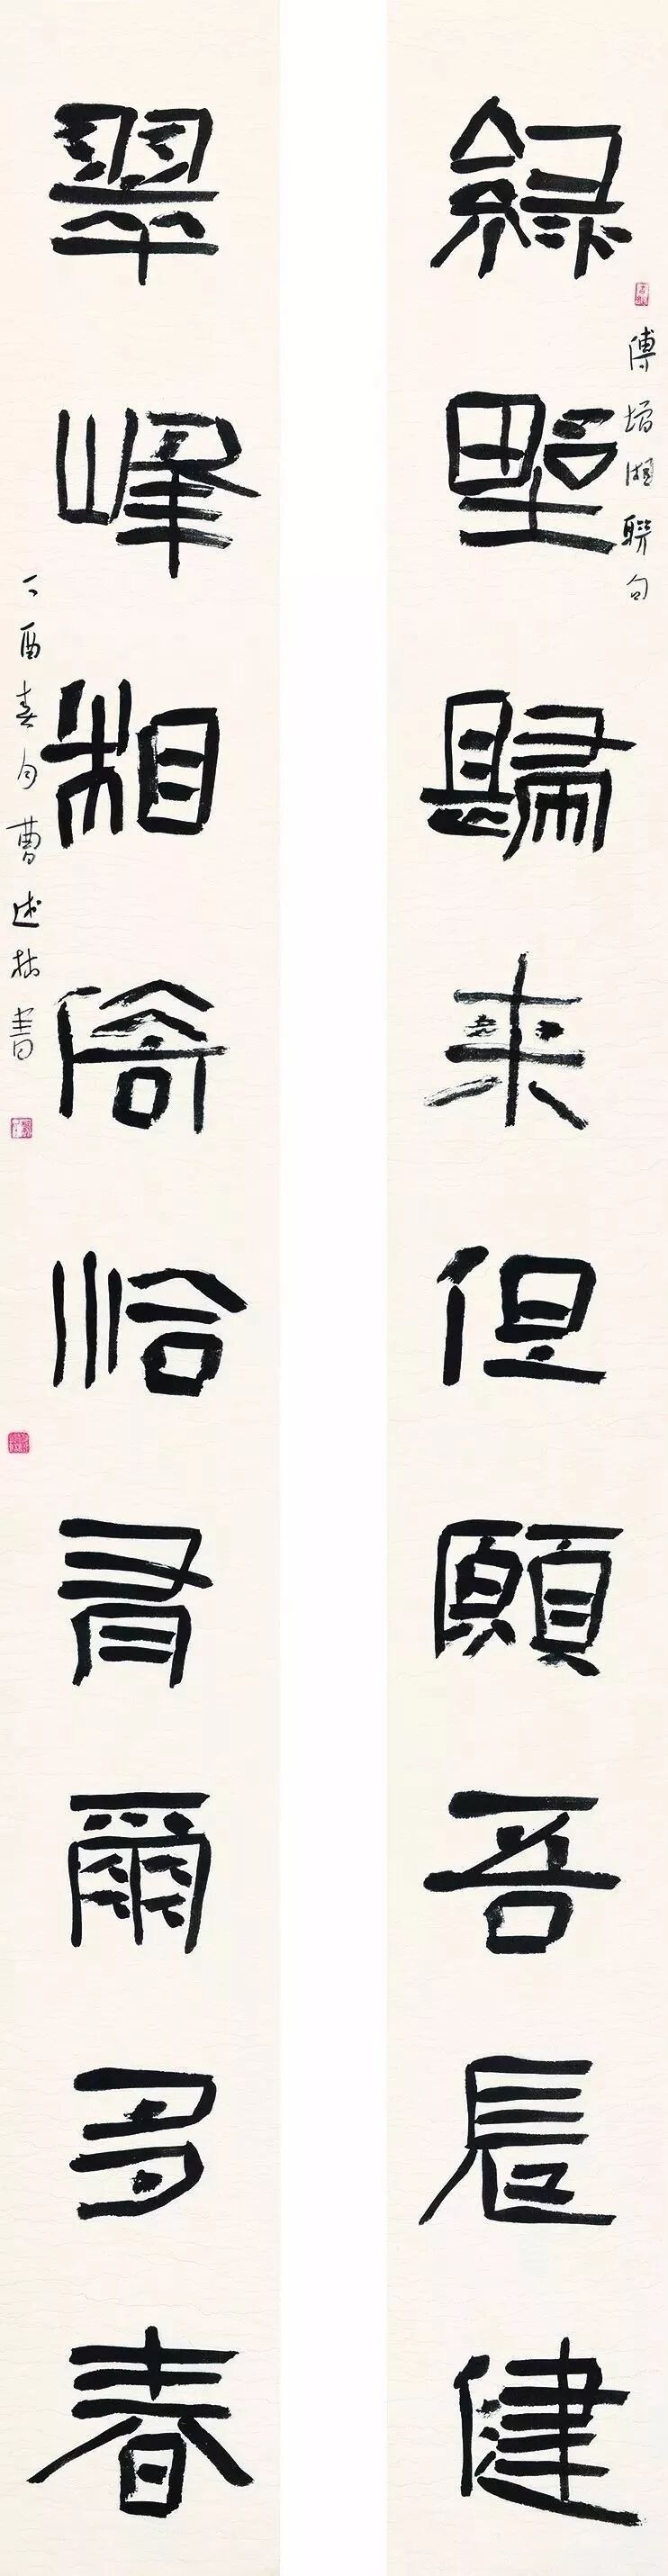 綠野歸來但願吾長健
傅增湘聯句
翠峰相倚恰有爾多春
丁酉春月曹述林書